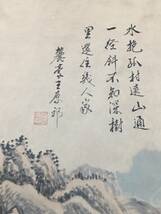 水抱孤村遠山通
一徑斜不知深樹
里還住幾人家
麓臺王原祁